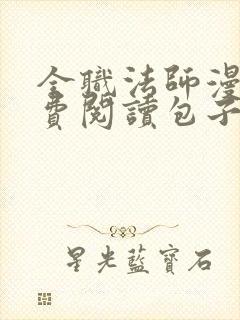 全職法師漫
費閱讀包子
星光藍寶石